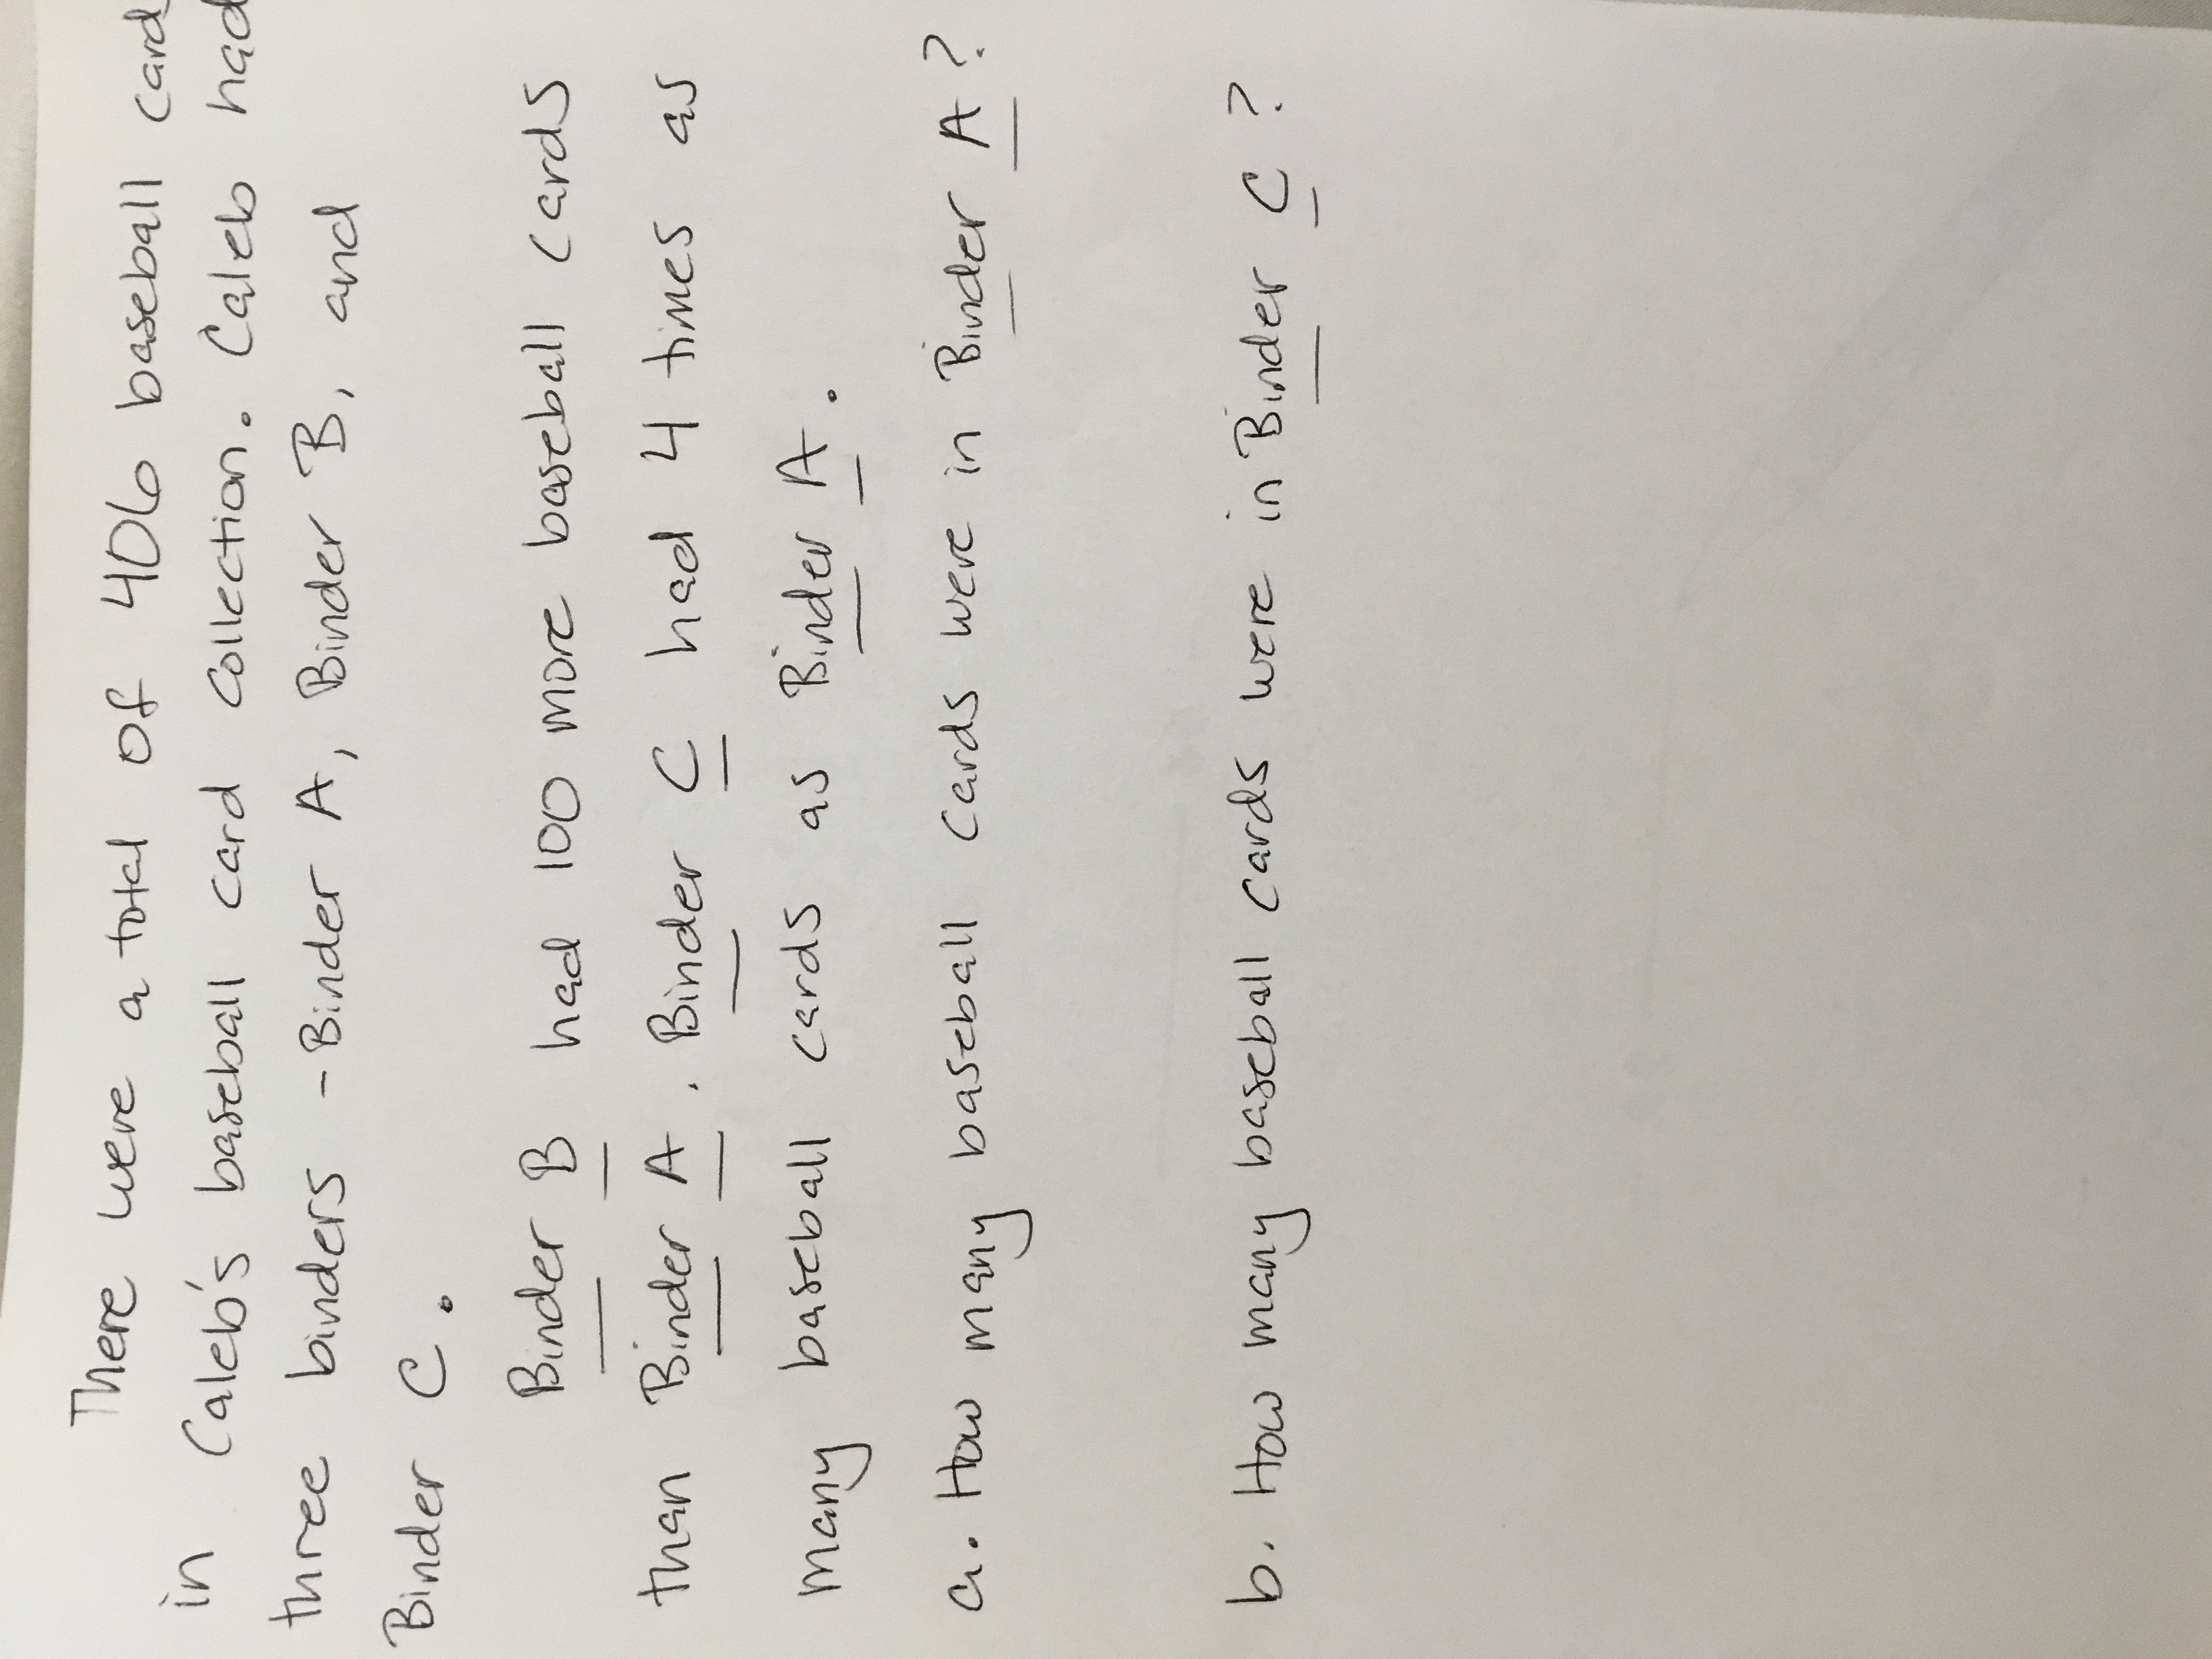 There were a total of 406 baseball card
in Caleb's baseball card collection. Caleb had
three binders - Binder A, Binder B, and
Binder C.
Binder B had 100 more baseball cards
than Binder A. Binder C had 4 times as
many baseball cards as Binder A.
a. How many baseball cards were in Binder A?
b. How many baseball cards were in Binder C?